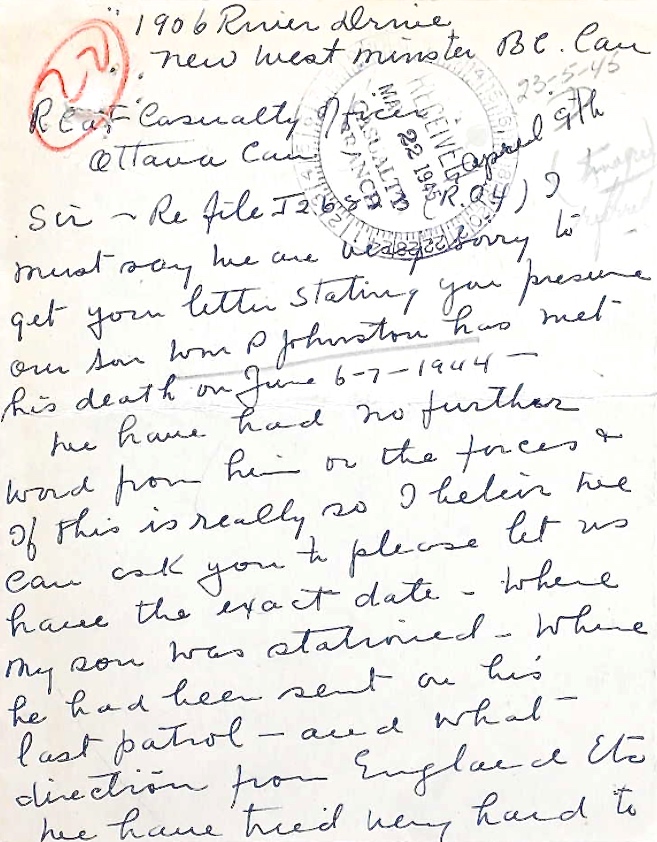 1906 River Drive
New West Minster BC. Can
22
23-5-45
RCAF Casualty Officer
Ottawa Can
RECEIVED
MAY 22 1945
CASUALTY
BRANCH
April 9th
Sir ~ Re file J268 (R.O4) I
must say we are very sorry to
get your letter stating you presume
our son Wm P Johnston has met
his death on June 6-7-1944 —
We have had no further
word from him or the forces &
If this is really so I beleiv we
can ask you to please let us
have the exact date - Where
my son was stationed - Where
he had been sent on his
last patrol - and what
direction from England Etc
We have tried very hard to